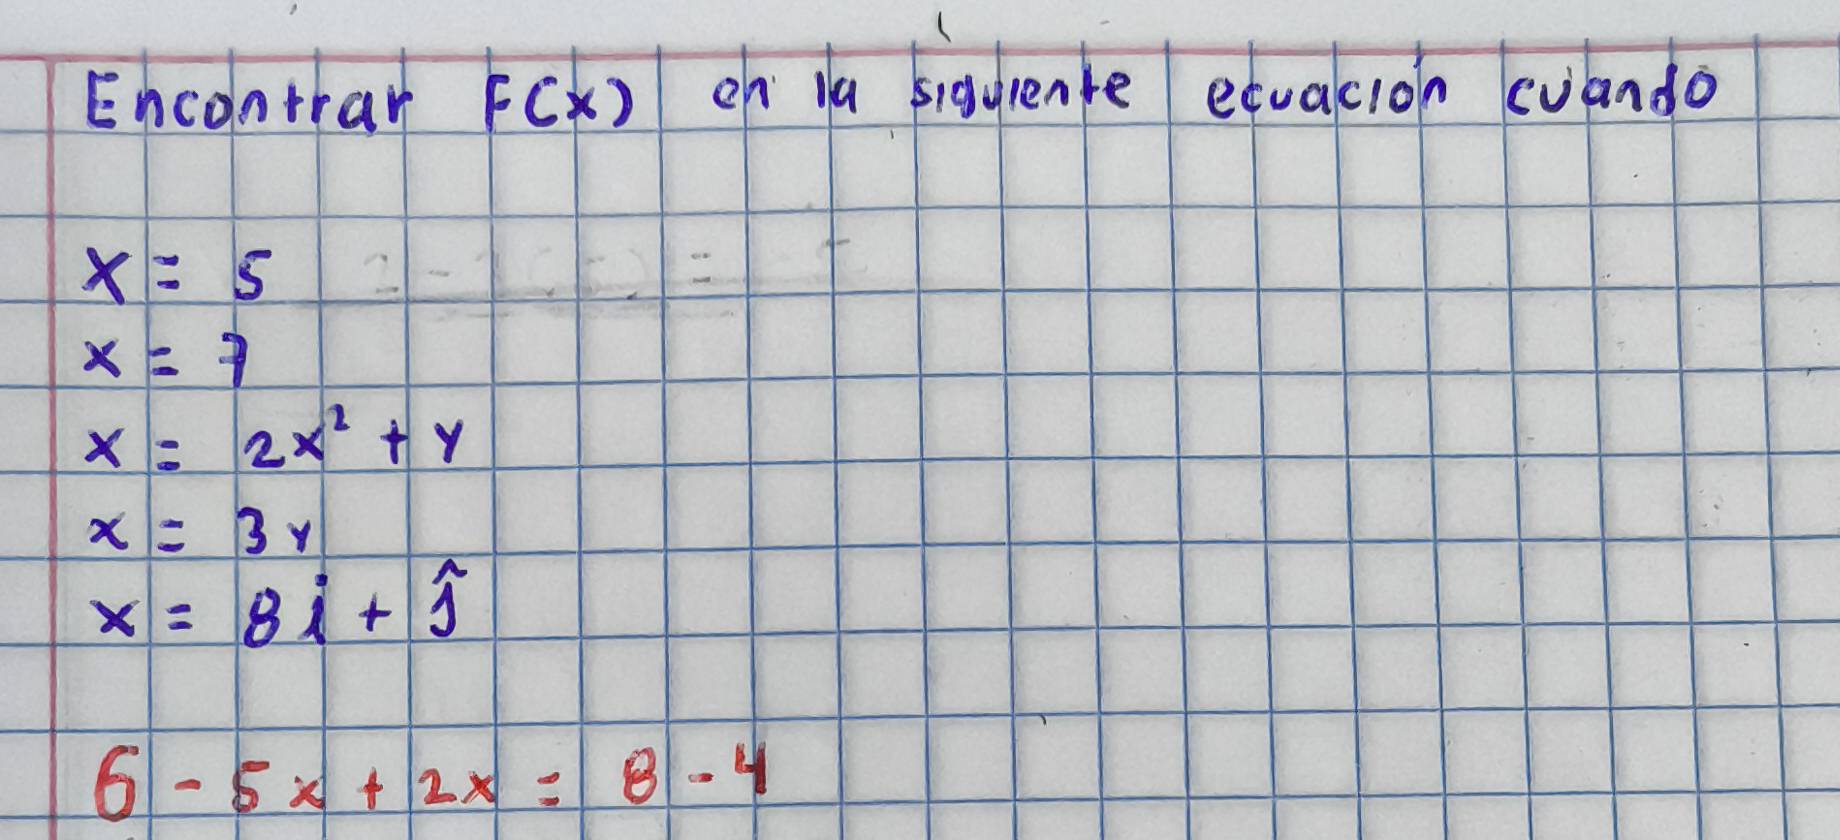 Encontrar F(x) en la siguiente ecuación cuando
x = 5
x = 7
x = 2x² + y
x = 3y
x = 8i + ĵ
6 - 5x + 2x = 8 - 4